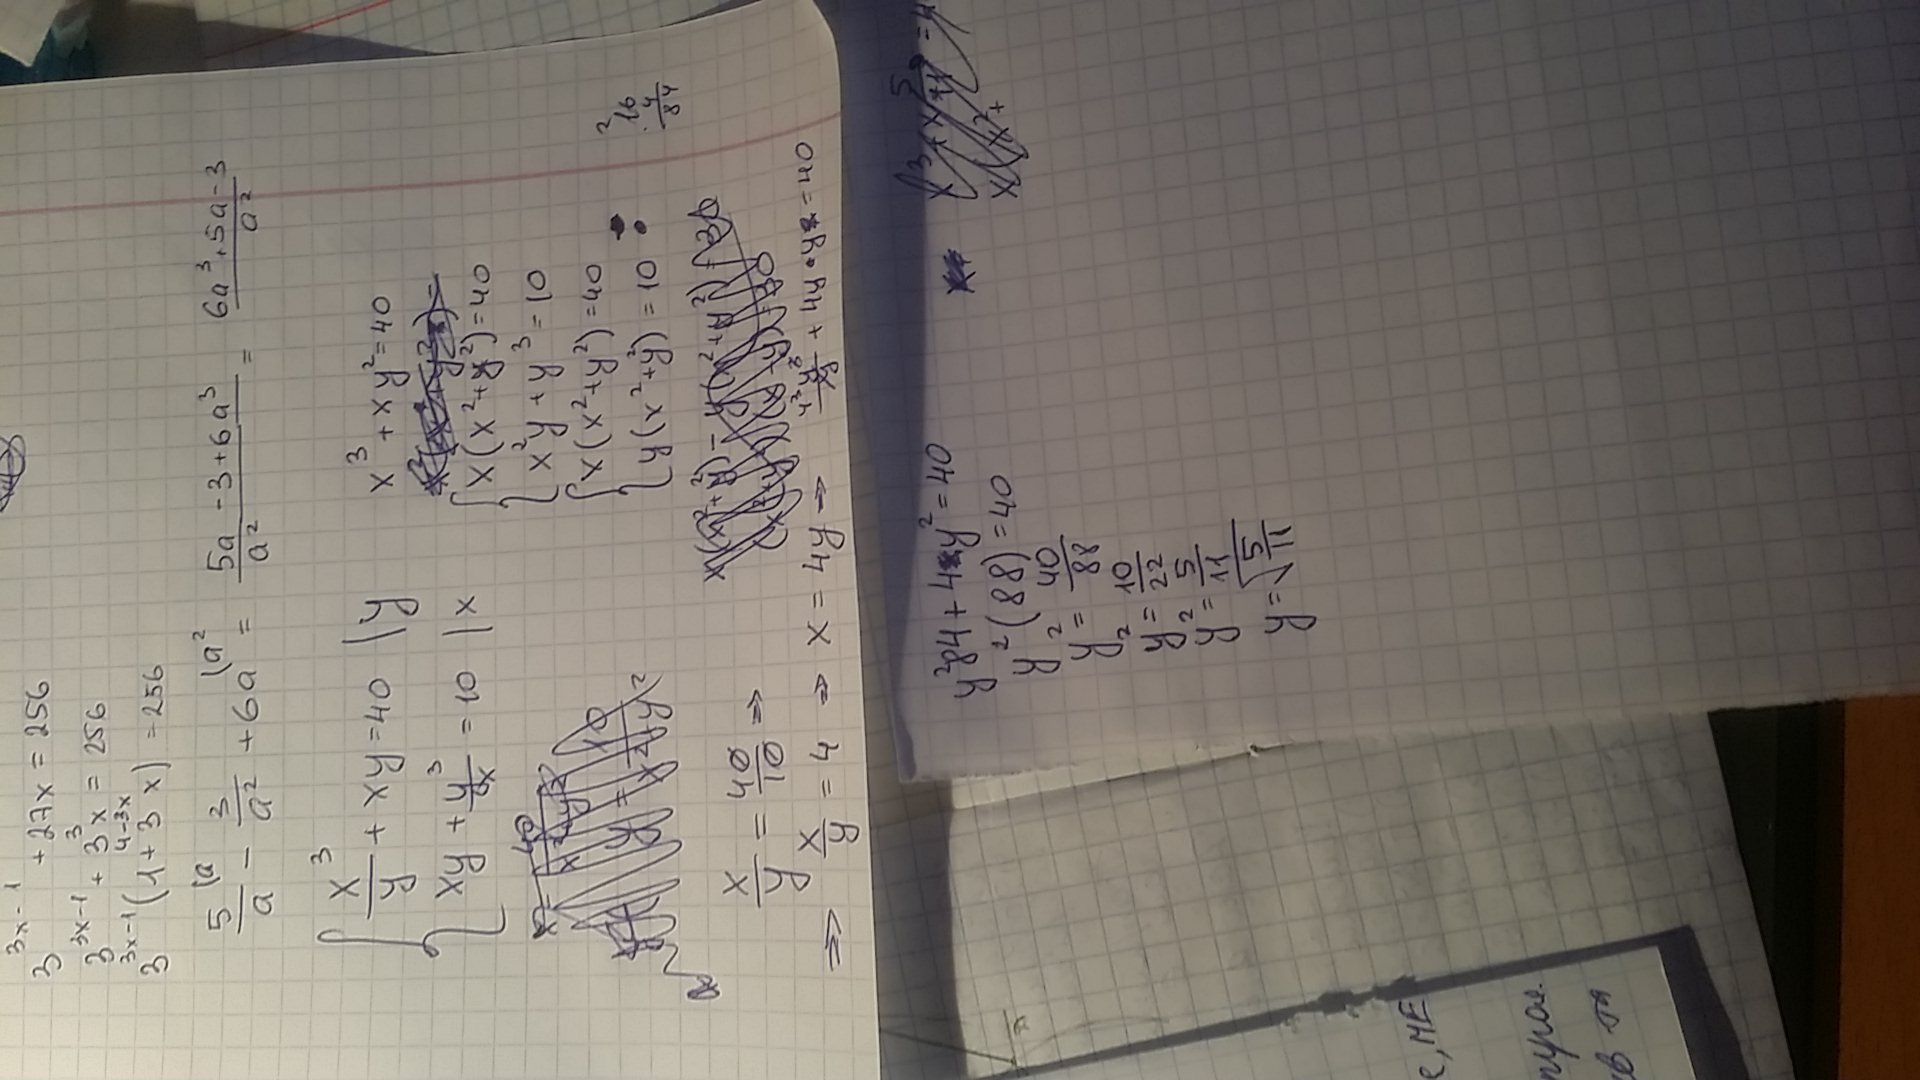 3^(3x-1) + 27x = 256
3^(3x-1) + 3^3 x = 256
3^(3x-1) (1 + 3^(4-3x) x) = 256
5/a (a - 3/a² + 6a (a² = (5a - 3 + 6a³)/a² = (6a³ + 5a - 3)/a²
{ x³/y + xy = 40 | y
xy + y³/x = 10 | x
x³ + xy² = 40
{ x(x² + y²) = 40
x²y + y³ = 10
{ x(x² + y²) = 40
y(x² + y²) = 10 :
²16
· 4
84
x/y = 40/10 ⇒
⇒ x/y = 4 ⇒ x = 4y ⇒ 4³y³/y + 4y · y = 40
y²84 + 4y² = 40
y²(88) = 40
y² = 40/88
y² = 10/22
y² = 5/11
y = √(5/11)
е, МЕ